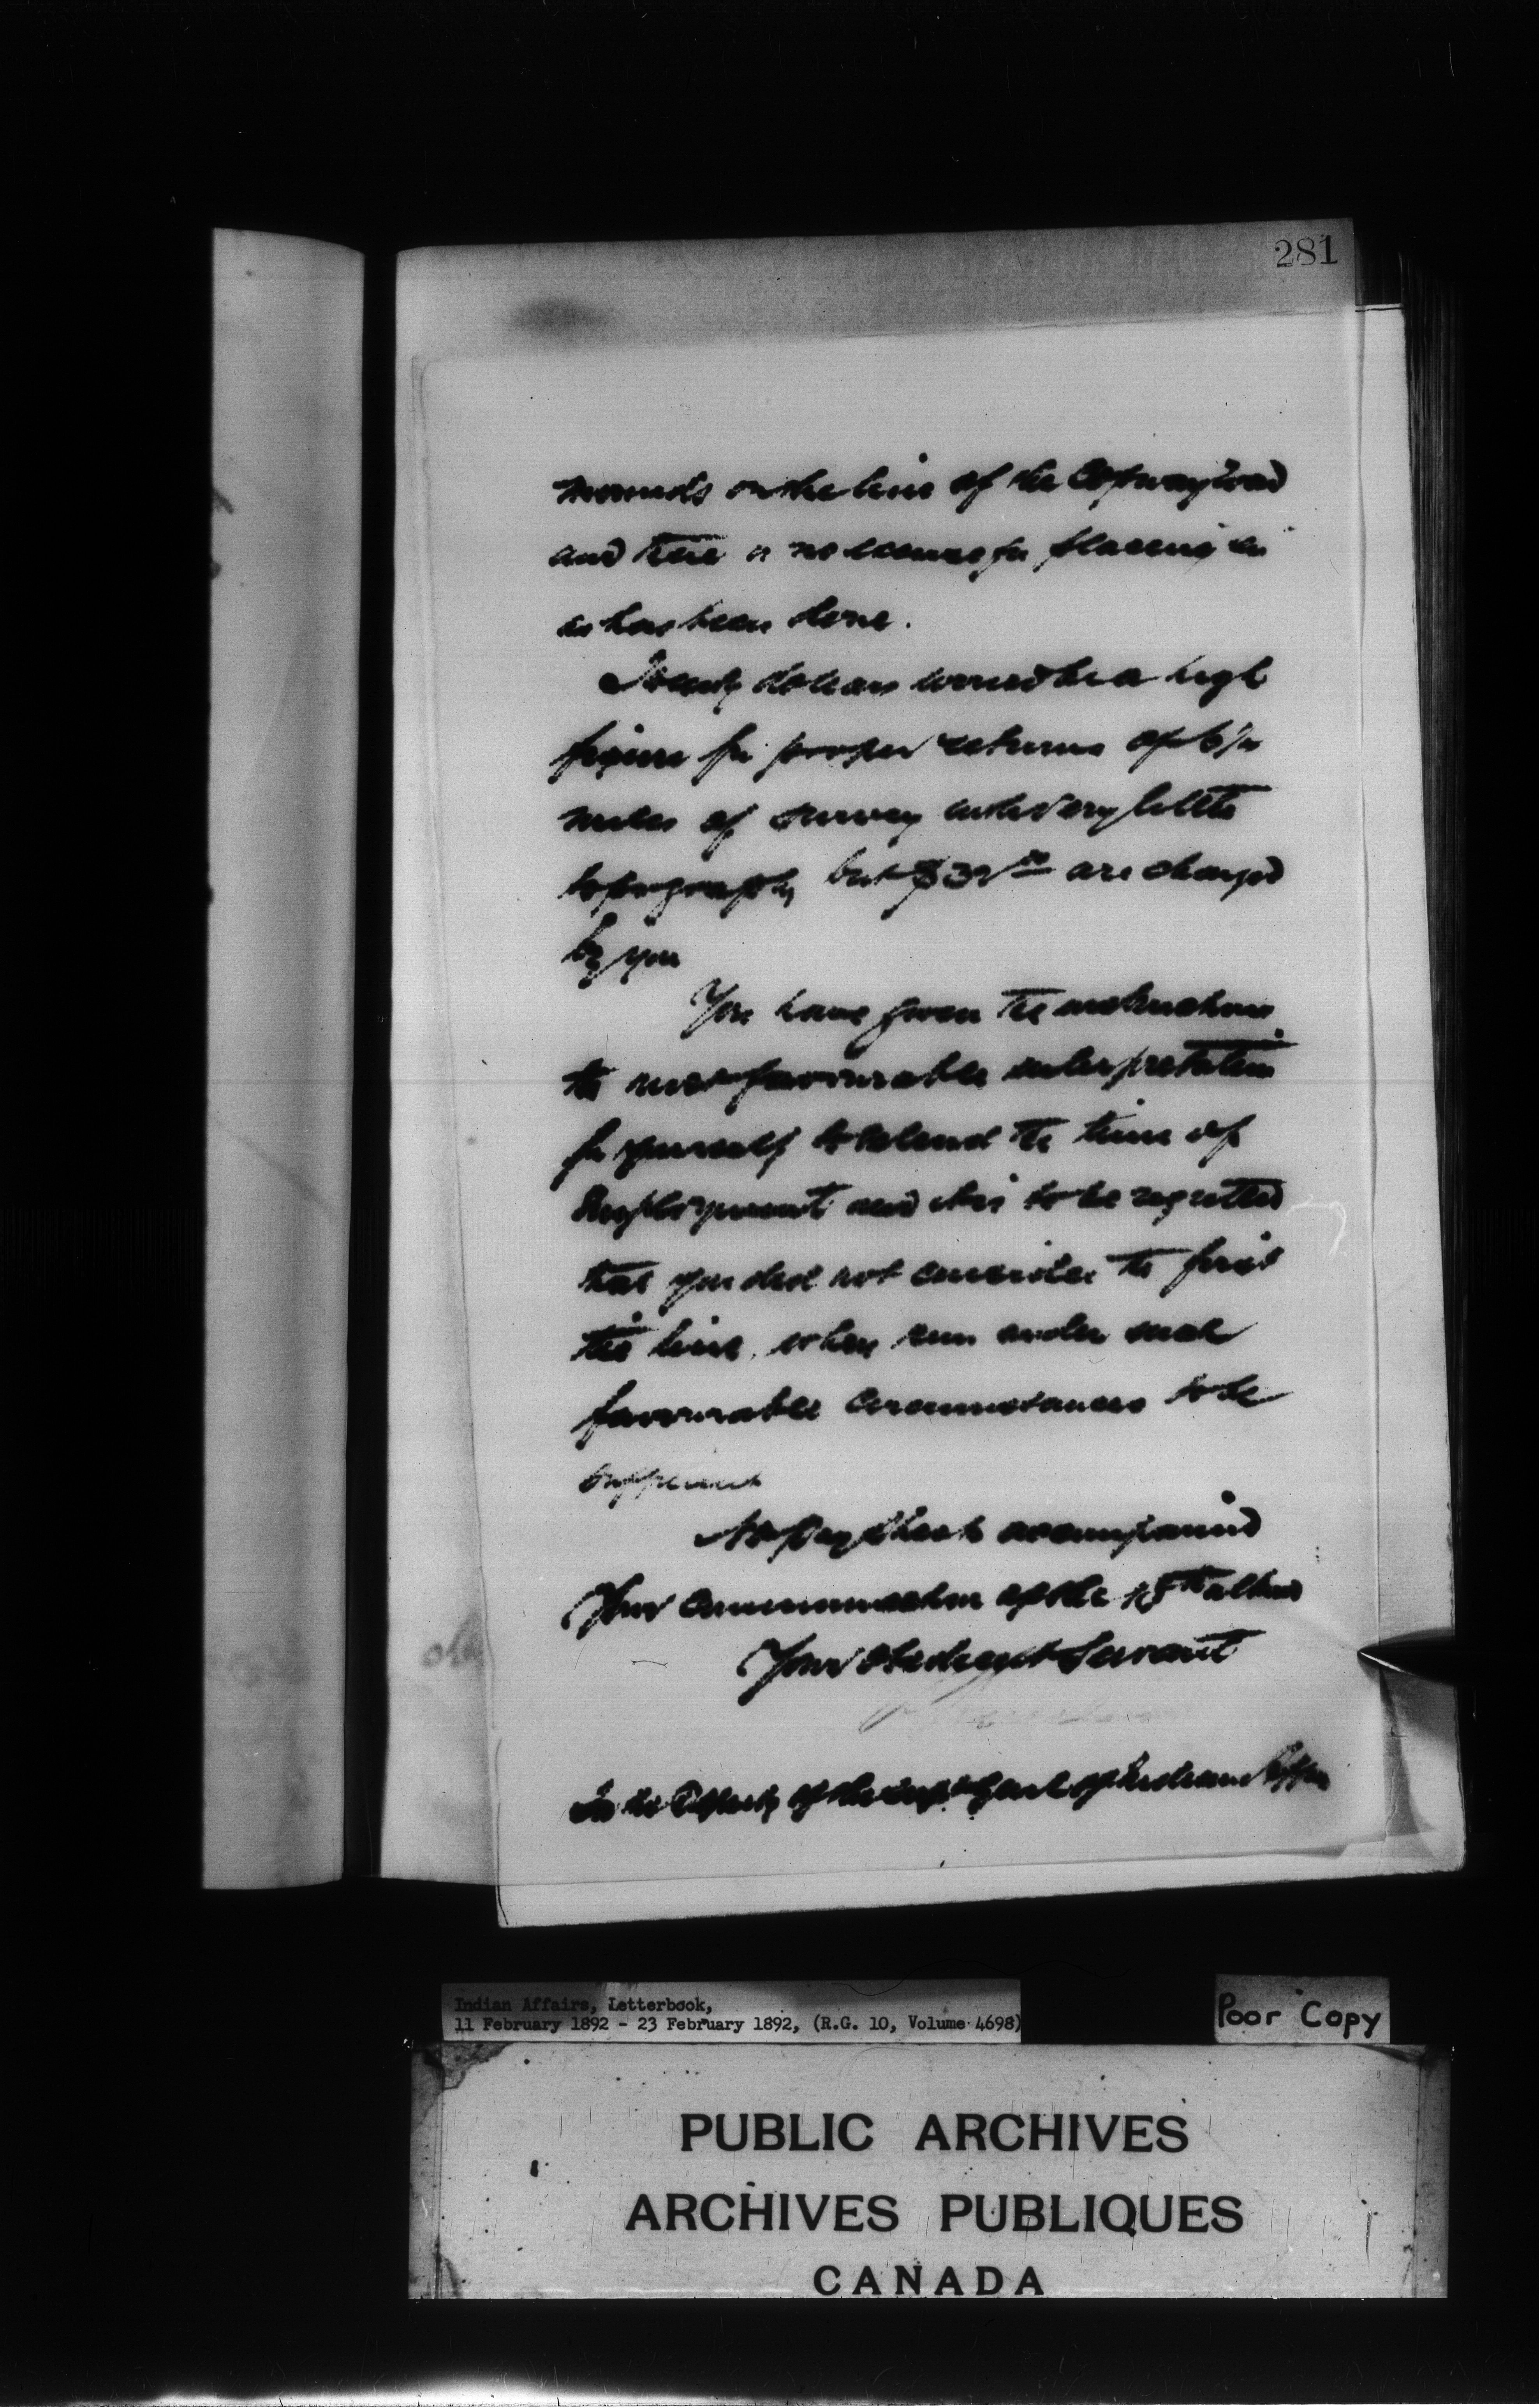 281
mounds on the line of the Copway road
and there is no excuse for placing
as has been done.
Twenty dollars would be a high
figure for proper returns of 6½
miles of survey with very little
topography but $32.00 are charged
by you
You have given the instructions
the most favourable interpretation
for yourself to extend the time of
Employment and it is to be regretted
that you did not consider the first
line, when run under such
favourable circumstances to be
sufficient
No pay sheet accompanied
Your communication of the 15th ultimo
Your obedient Servant
In the Absence of the Dept Supt Genl of Indian Affairs
Indian Affairs, Letterbook,
11 February 1892 - 23 February 1892, (R.G. 10, Volume 4698)
Poor Copy
PUBLIC ARCHIVES
ARCHIVES PUBLIQUES
CANADA